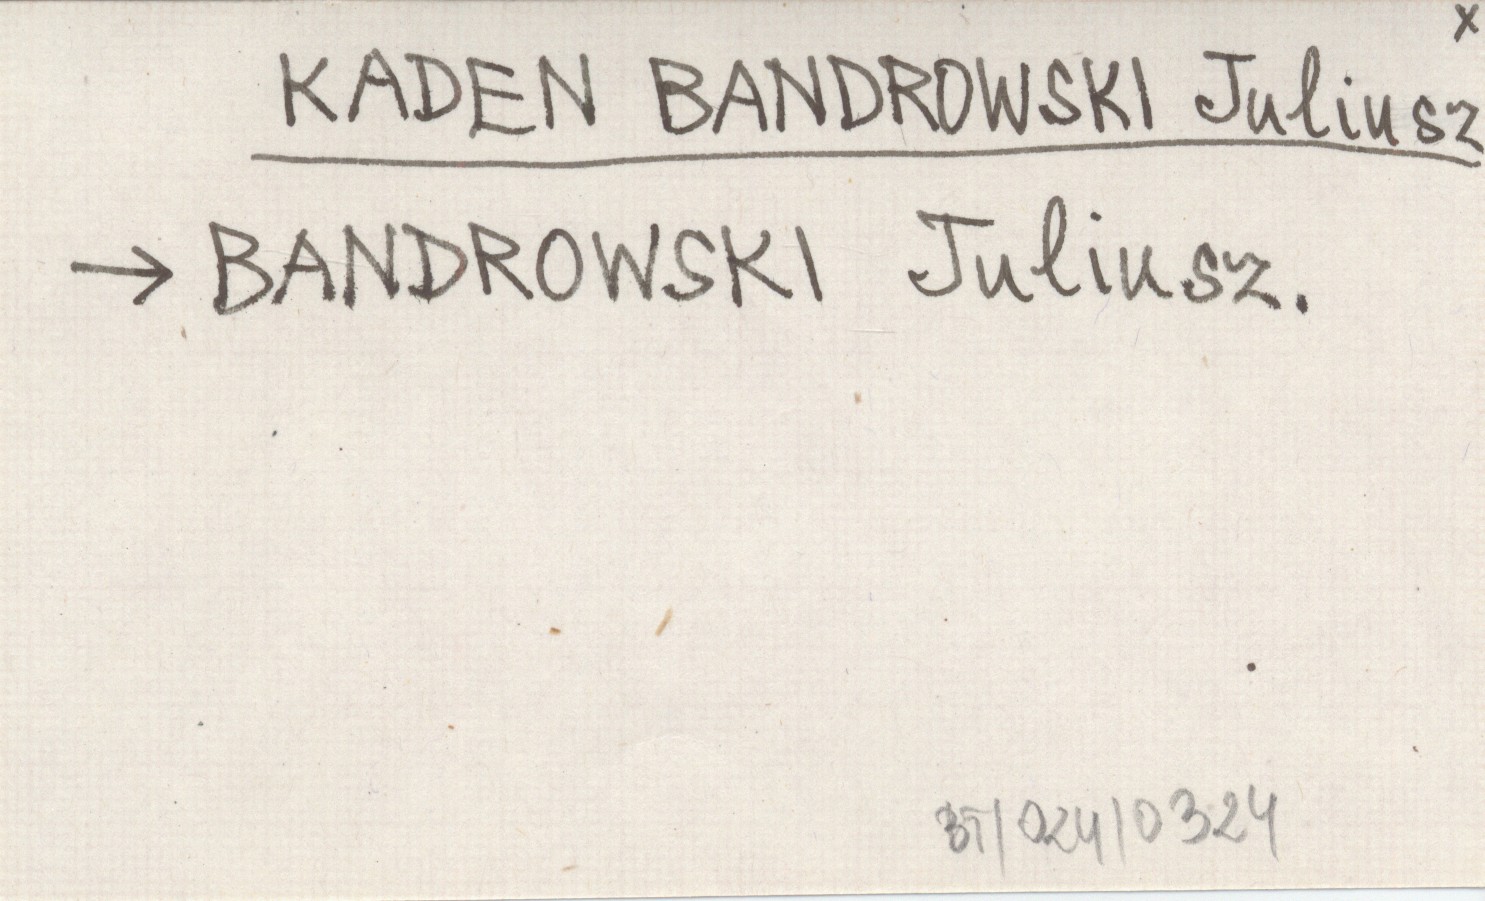 x
KADEN BANDROWSKI Juliusz
→ BANDROWSKI Juliusz.
BT/024/0324